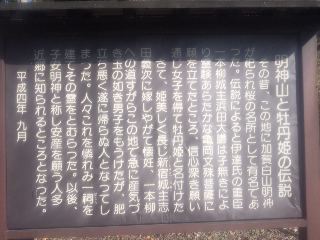 明神山と牡丹姫の伝説
その昔、この地に加賀白山明神
が祀られ桜の名所として有名であ
った。伝説によると伊達氏の重臣
一本柳城主浜田大膳は子無きによ
り霊験あらたかな亀岡文殊菩薩に
願を立てたところ、信心深き願い
通じ女子を得て牡丹姫と名付けた
さて、姫美しく長じ新宿城主志
田義次に嫁しやがて懐妊、一本柳
への道すがらこの地で急に産気づ
き玉の如き男子をもうけたが、肥
立ち悪く遂に帰らぬ人となってし
まった。人々これを憐れみ一祠を
建ててその霊をとむらった。以後、
子安明神と称し安産を願う人多く
近郷に知られるところとなった。
平成四年 九月